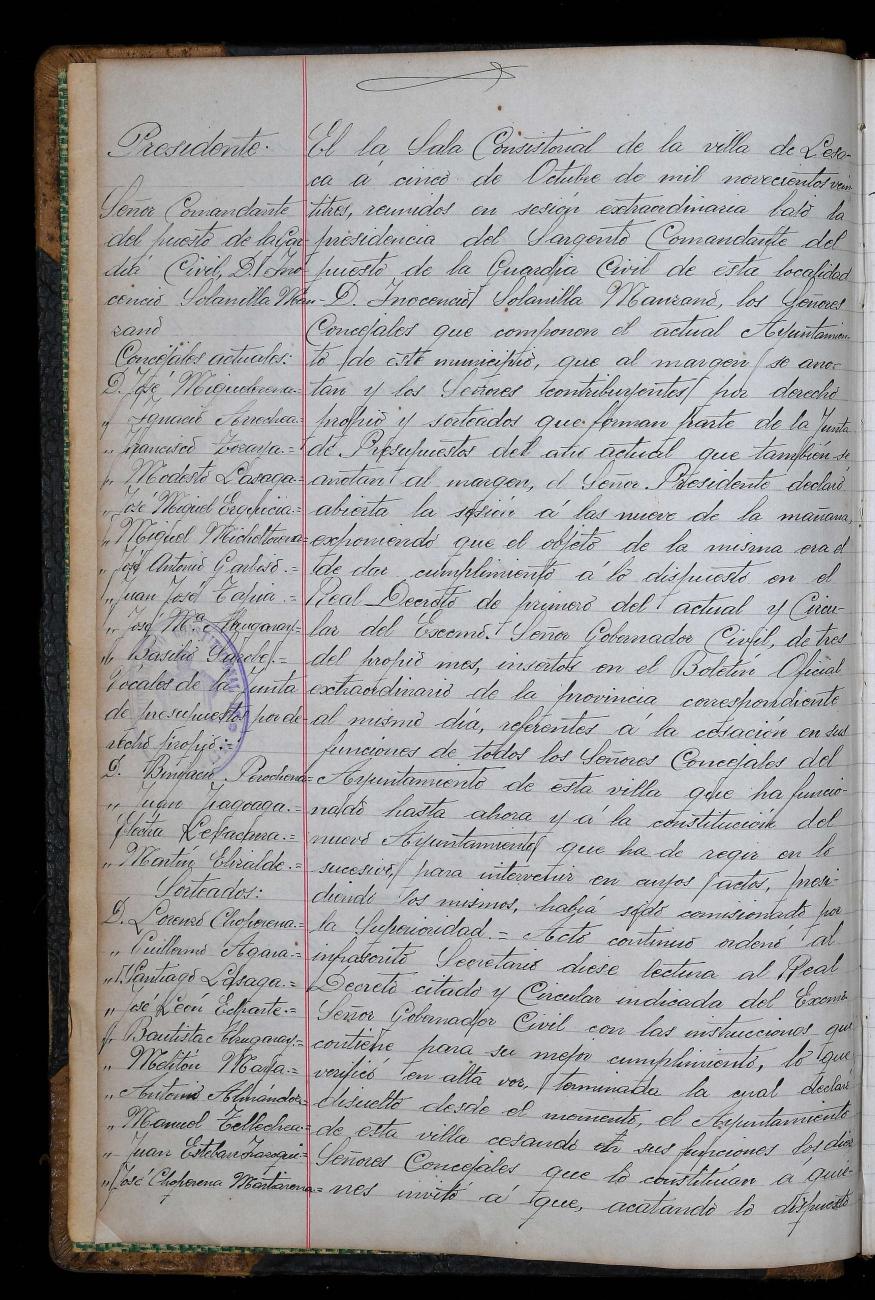 Presidente.
Señor Comandante
del puesto de la Guar-
dia Civil, D. Ino-
cencio Solanilla Man-
zano
Concejales actuales:
D. José Miguelorena.=
„ Ignacio Arrechea.=
„ Francisco Zoraya.=
„ Modesto Lasaga.=
„ José Miguel Erquicia.=
„ Miguel Micheltorena=
„ José Antonio Garbiso.=
„ Juan José Tapia.=
„ José Mª Irugaray.=
„ Basilio
Vocales de la Junta
de presupuestos por de-
recho propio:=
D. Bonifacio Perochena=
„ Juan
„ Lecachera.=
„ Martín Elizalde.=
Sorteados:
D. Lorenzo Choperena.=
„ Guillermo Agara.=
„ Santiago Lasaga.=
„ José León Echarte.=
„ Bautista Irugaray.=
„ Melitón Marta.=
„ Antonio Almándoz=
„ Manuel Tellechea=
„ Juan Esteban
„ José Choperena Martiarena=
El la Sala Consistorial de la villa de Lesa-
ca á cinco de Octubre de mil novecientos vein
titres, reunidos en sesion extraordinaria bajo la
presidencia del Sargento Comandante del
puesto de la Guardia Civil de esta localidad
D. Inocencio Solanilla Manzano, los Señores
Concejales que componen el actual Ayuntamien-
to de este municipio, que al margen se ano-
tan y los Señores contribuyentes por derecho
propio y sorteados que forman parte de la Junta
de Presupuestos del año actual que también se
anotan al margen, el Señor Presidente declaró
abierta la sesión á las nueve de la mañana,
exponiendo que el objeto de la misma era el
de dar cumplimiento á lo dispuesto en el
Real Decreto de primero del actual y Circu-
lar del Excmo. Señor Gobernador Civil, de tres
del propio mes, insertos en el Boletín Oficial
extraordinario de la provincia correspondiente
al mismo día, referentes á la cesación en sus
funciones de todos los Señores Concejales del
Ayuntamiento de esta villa que ha funcio-
nado hasta ahora y á la constitución del
nuevo Ayuntamiento que ha de regir en lo
sucesivo, para intervenir en cuyos actos, presi-
diendo los mismos, había sido comisionado por
la Superioridad.= Acto continuo ordenó al
infrascrito Secretario diese lectura al Real
Decreto citado y Circular indicada del Excmo.
Señor Gobernador Civil con las instrucciones que
contiene para su mejor cumplimiento, lo que
verificó en alta voz, terminada la cual declaró
disuelto desde el momento, el Ayuntamiento
de esta villa cesando en sus funciones los diez
Señores Concejales que lo constituían á quie-
nes invitó á que, acatando lo dispuesto